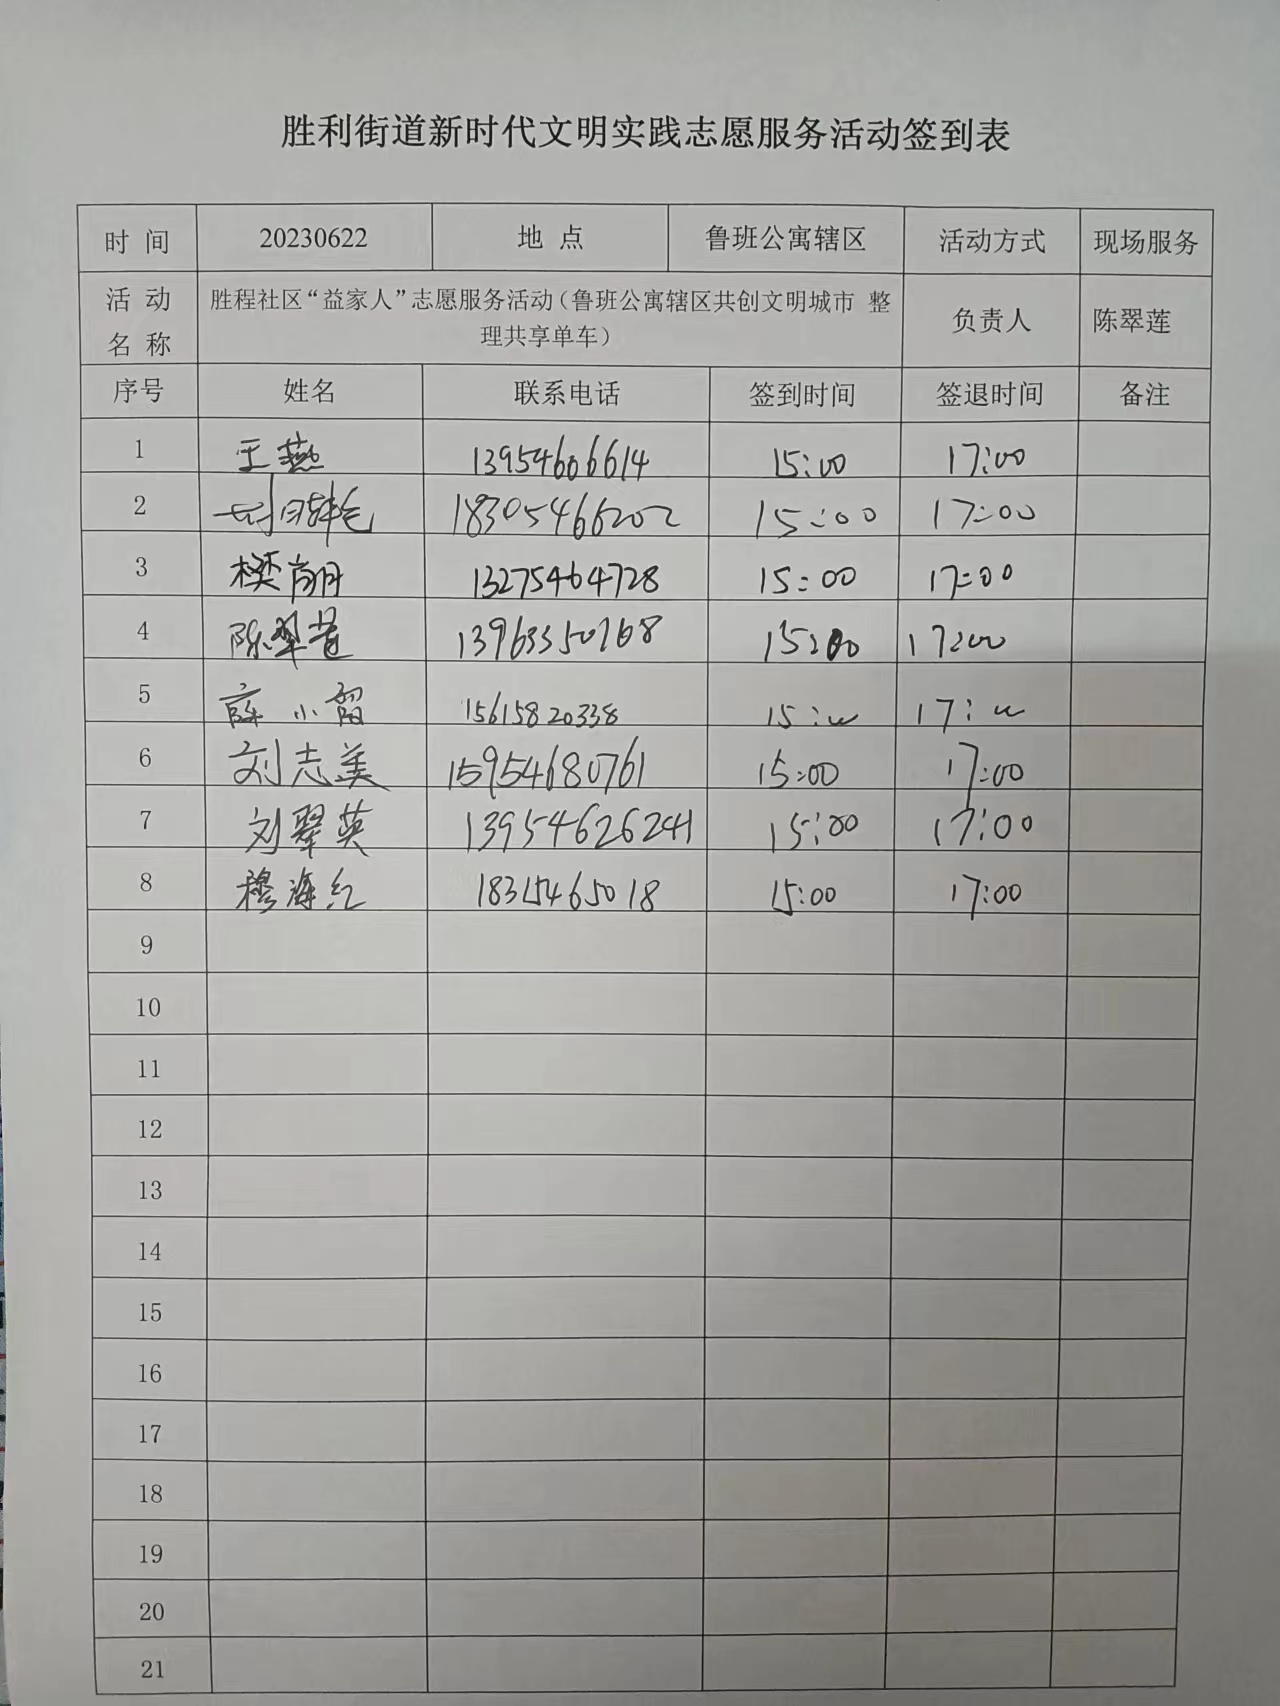 胜利街道新时代文明实践志愿服务活动签到表
时 间 20230622 地 点 鲁班公寓辖区 活动方式 现场服务
活 动 名 称 胜程社区“益家人”志愿服务活动（鲁班公寓辖区共创文明城市 整 理共享单车） 负责人 陈翠莲
序号 姓名 联系电话 签到时间 签退时间 备注
1 王燕 13954606614 15:00 17:00
2 18305466202 15:00 17:00
3 13275464728 15:00 17:00
4 陈翠莲 13963350768 15:00 17:00
5 小留 15615820338 15:00 17:00
6 刘志美 15954680761 15:00 17:00
7 刘翠英 13954626241 15:00 17:00
8 穆海红 18315465018 15:00 17:00
9
10
11
12
13
14
15
16
17
18
19
20
21